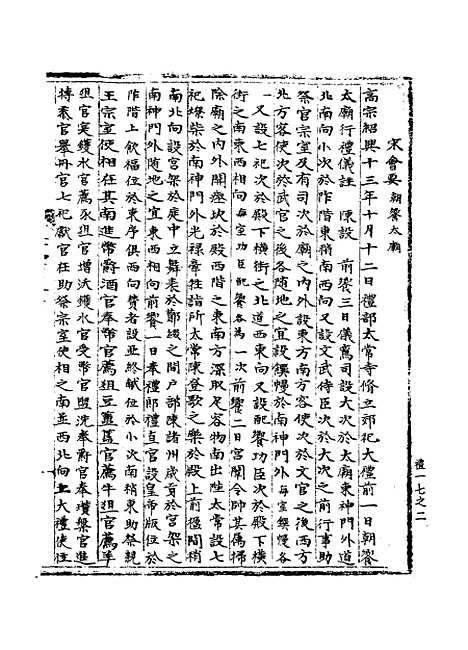 宋會要 朝饗太廟
高宗紹興十三年十月十二日禮部太常寺脩立郊祀大禮前一日朝饗
太廟行禮儀註 陳設 前饗三日儀鸞司設大次於太廟東神門外道
北南向小次於阼階東稍南西向又設文武侍臣次於大次之前行事助
祭官宗室及有司次於廟之內外設東方南方客使次於文官之後西方
北方客使次於武官之後各隨地之宜設饌幔於南神門外每室饌幔各
一又設七祀次於殿下橫街之北道西東向又設配饗功臣次於殿下橫
街之南東西相向每室功臣配饗各為一次前饗二日宮闈令帥其屬掃
除廟之內外開瘞坎於殿西階之東南方深取足容物南出陛太常設七
祀燎柴於南神門外光祿牽牲詣所太常陳登歌之樂於殿上前楹間稍
南北向設宮架於庭中立舞表於酇綴之間戶部陳諸州歲貢於宮架之
南神門外隨地之宜東西相向前饗一日奉禮郎禮直官設皇帝版位於
阼階上飲福位於東序俱西向贊者設亞終獻位於小次南稍東助祭親
王宗室使相在其南進幣爵酒官奉幣官薦俎豆簠簋官薦牛俎官薦羊
俎官實鑊水官薦豕俎官增沃鑊水官受幣官盥洗奉爵官奉瓚槃官進
摶黍官舉冊官七祀獻官在助祭宗室使相之南並西北向上大禮使位
禮一七之二